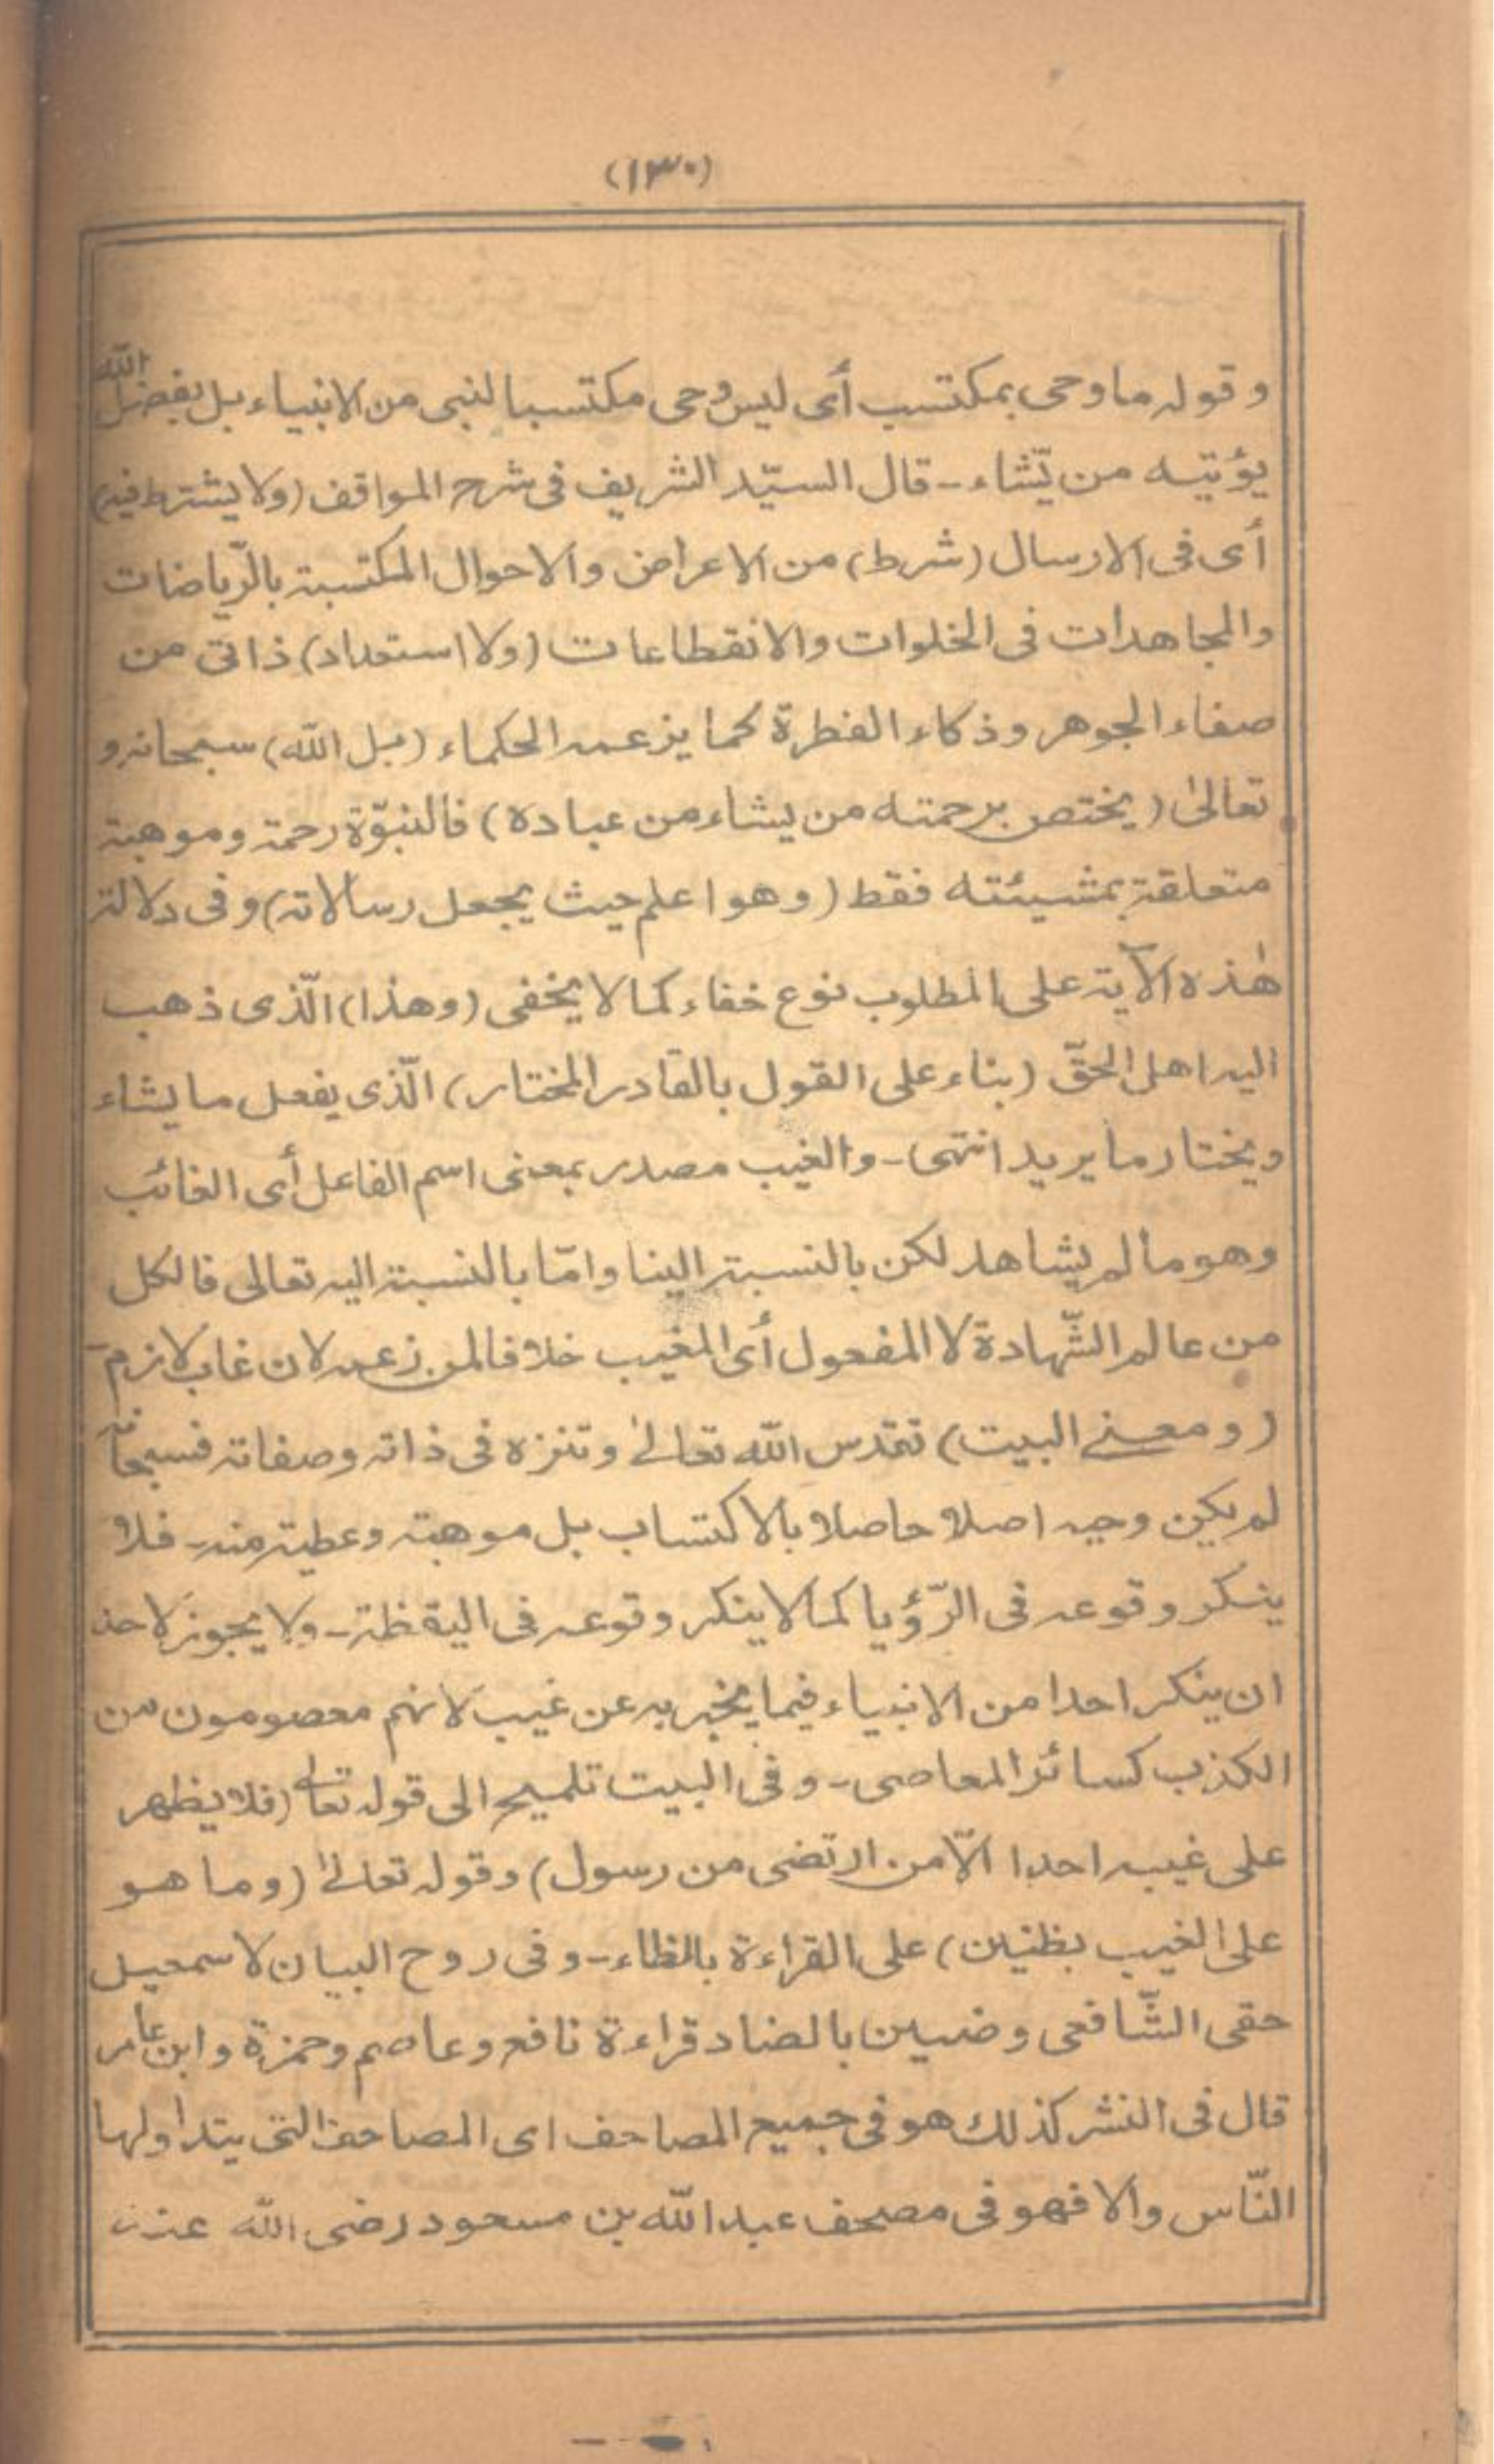 (١٣٠)
وقوله ما وحى بمكتسب أى ليس وحى مكتسبا لنبى من الانبياء بل بفضل الله
يؤتيه من يّشاء - قال السيّد الشريف فى شرح المواقف (ولا يشترط فيه)
أى فى الارسال (شرط) من الاعراض والاحوال المكتسبة بالرّياضات
والمجاهدات فى الخلوات والانقطاعات (ولا استعداد) ذاتى من
صفاء الجوهر وذكاء الفطرة كما يزعمه الحكماء (بل الله) سبحانه و
تعالىٰ (يختص برحمته من يشاء من عباده) فالنبوّة رحمة وموهبة
متعلقة بمشيئته فقط (وهو اعلم حيث يجعل رسالاته) وفى دلالة
هٰذه الآية على المطلوب نوع خفاء كما لا يخفى (وهذا) الّذى ذهب
اليه اهل الحقّ (بناء على القول بالقادر المختار) الّذى يفعل ما يشاء
ويختار ما يريد انتهى - والغيب مصدر بمعنى اسم الفاعل أى الغائب
وهو ما لم يشاهد لكن بالنسبة الينا وامّا بالنسبة اليه تعالى فالكل
من عالم الشّهادة لا المفعول أى المغيب خلافا لمن زعمه لان غاب لازم
(ومعنے البيت) تقدس الله تعالےٰ وتنزه فى ذاته وصفاته فسبحانه
لم يكن وحيه اصلا حاصلا بالاكتساب بل موهبة وعطية منه - فلا
ينكر وقوعه فى الرّؤيا كما لا ينكر وقوعه فى اليقظة - ولا يجوز لاحد
ان ينكر احدا من الانبياء فيما يخبر به عن غيب لانهم معصومون من
الكذب كسائر المعاصى - وفى البيت تلميح الى قوله تعالے (فلا يظهر
على غيبه احدا الّا من ارتضى من رسول) وقوله تعالےٰ (وما هو
على الغيب بظنين) على القراءة بالظاء - وفى روح البيان لاسمعيل
حقى الشّافعى وضنين بالضاد قراءة نافع وعاصم وحمزة وابن عامر
قال فى النشر كذلك هو فى جميع المصاحف اى المصاحف التى يتداولها
النّاس والا فهو فى مصحف عبد الله بن مسعود رضى الله عنه